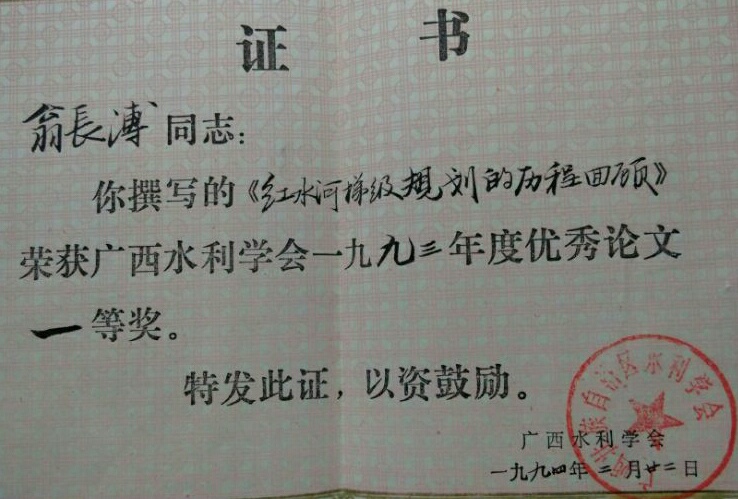 证书
翁長溥同志：
你撰写的《红水河梯级规划的历程回顾》
荣获广西水利学会一九九三年度优秀论文
一等奖。
特发此证，以资鼓励。
广西壮族自治区水利学会
广西水利学会
一九九四年二月廿二日